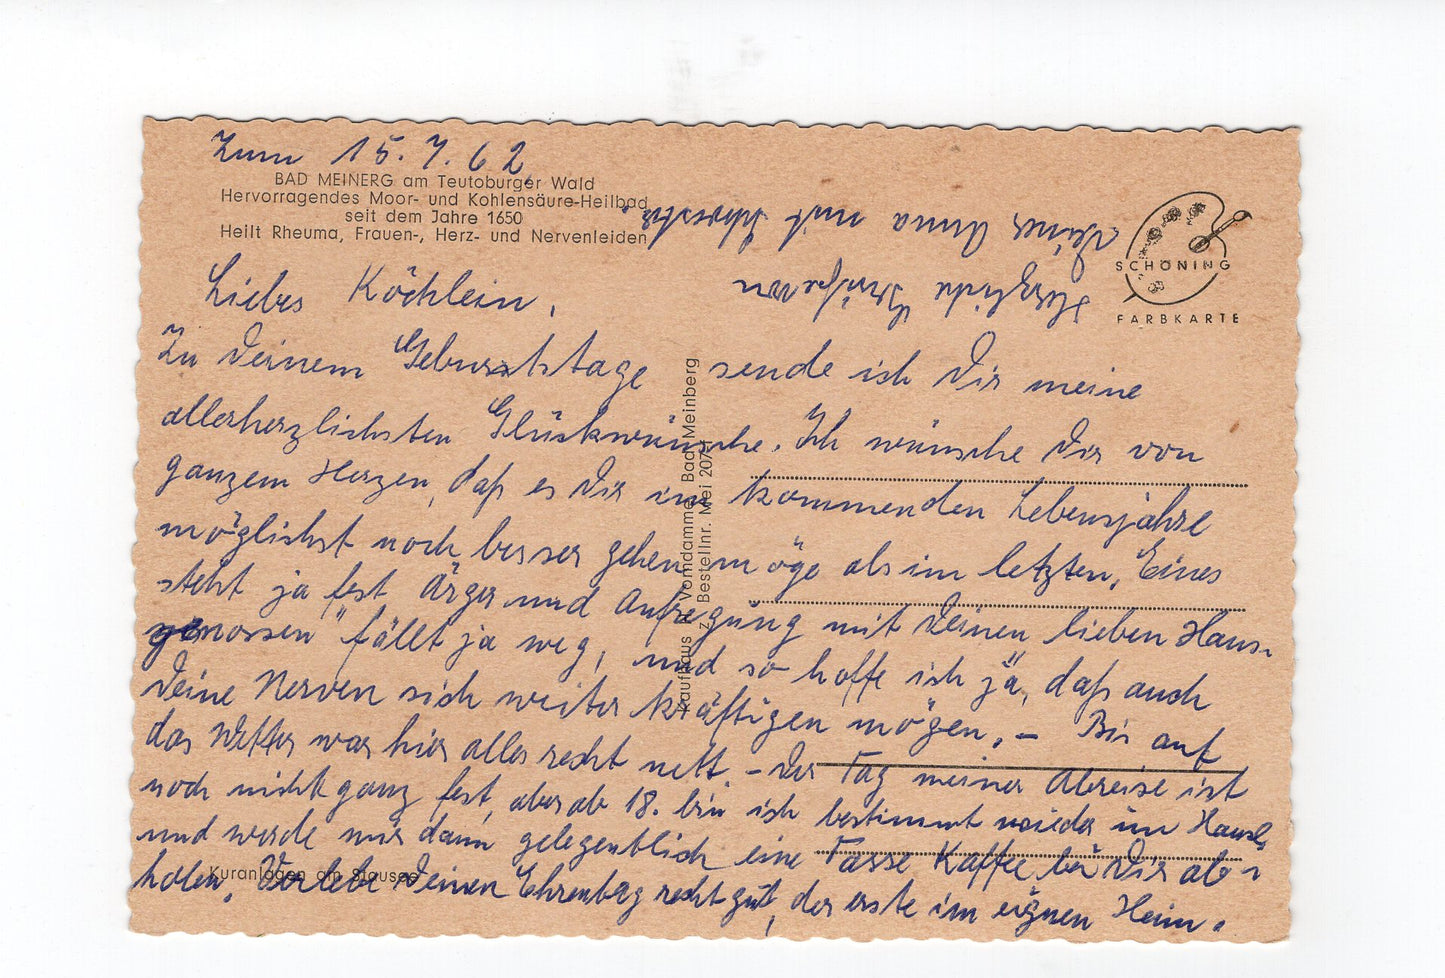 Zum 15. 7. 62
BAD MEINERG am Teutoburger Wald
Hervorragendes Moor- und Kohlensäure-Heilbad
seit dem Jahre 1650
Heilt Rheuma, Frauen-, Herz- und Nervenleiden
SCHÖNING
FARBKARTE
Liebes Köchlein,
Zu Deinem Geburtstage sende ich Dir meine
allerherzlichsten Glückwünsche. Ich wünsche Dir von
ganzem Herzen, daß es Dir im kommenden Lebensjahre
möglichst noch besser gehen möge als im letzten, Eines
steht ja fest Ärger und Aufregung mit Deinen lieben Haus-
genossen" fällt ja weg, und so hoffe ich ja, daß auch
Deine Nerven sich weiter kräftigen mögen. – Bis auf
das Wetter war hier alles recht nett. – Der Tag meiner Abreise ist
noch nicht ganz fest, aber ab 18. bin ich bestimmt wieder im Hause,
und werde mir dann gelegentlich eine Tasse Kaffee bei Dir ab-
holen. Verlebe Deinen Ehrentag recht gut, der erste im eignen Heim.
Herzliche Grüße von
Deiner Anna mit Schwester.
Kaufhaus R. Vomdamme, Bad Meinberg
Bestellnr. Mei 2079
Kuranlagen am Stausee